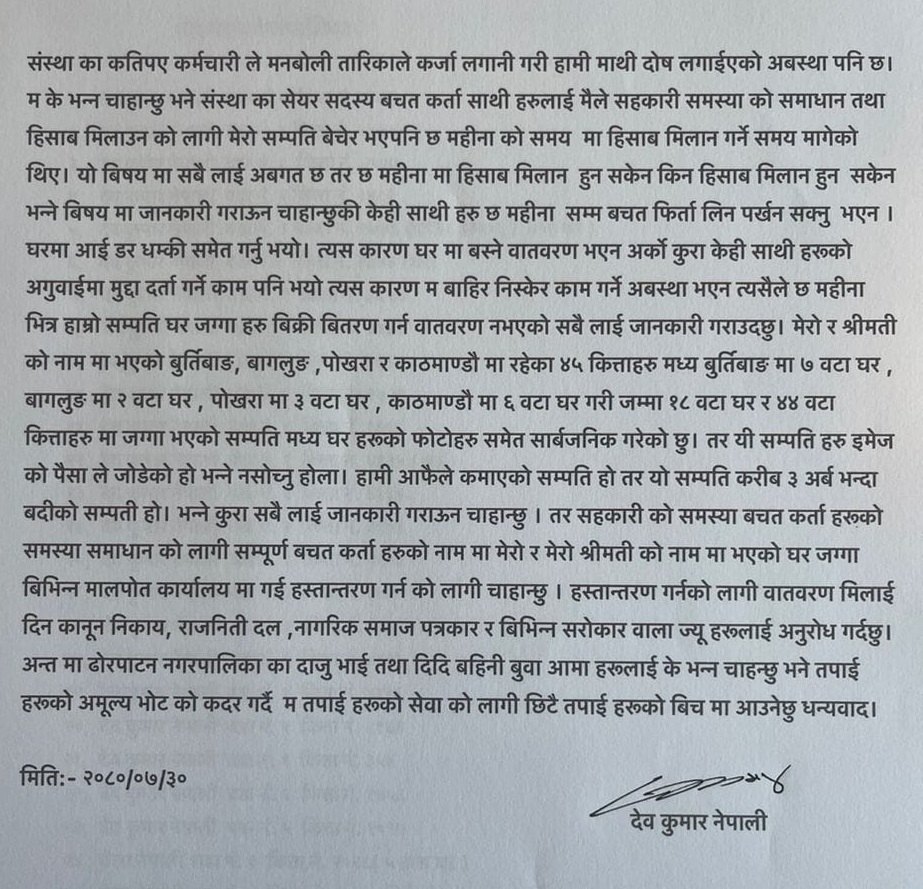 संस्था का कतिपए कर्मचारी ले मनबोली तारिकाले कर्जा लगानी गरी हामी माथी दोष लगाईएको अबस्था पनि छ।
म के भन्न चाहान्छु भने संस्था का सेयर सदस्य बचत कर्ता साथी हरुलाई मैले सहकारी समस्या को समाधान तथा
हिसाब मिलाउन को लागी मेरो सम्पति बेचेर भएपनि छ महीना को समय मा हिसाब मिलान गर्ने समय मागेको
थिए। यो बिषय मा सबै लाई अबगत छ तर छ महीना मा हिसाब मिलान हुन सकेन किन हिसाब मिलान हुन सकेन
भन्ने बिषय मा जानकारी गराऊन चाहान्छुकी केही साथी हरु छ महीना सम्म बचत फिर्ता लिन पर्खन सक्नु भएन ।
घरमा आई डर धम्की समेत गर्नु भयो। त्यस कारण घर मा बस्ने वातवरण भएन अर्को कुरा केही साथी हरूको
अगुवाईमा मुद्दा दर्ता गर्ने काम पनि भयो त्यस कारण म बाहिर निस्केर काम गर्ने अबस्था भएन त्यसैले छ महीना
भित्र हाम्रो सम्पति घर जग्गा हरु बिक्री बितरण गर्न वातवरण नभएको सबै लाई जानकारी गराउदछु। मेरो र श्रीमती
को नाम मा भएको बुर्तिबाङ, बागलुङ ,पोखरा र काठमाण्डौ मा रहेका ४५ कित्ताहरु मध्य बुर्तिबाङ मा ७ वटा घर ,
बागलुङ मा २ वटा घर , पोखरा मा ३ वटा घर , काठमाण्डौ मा ६ वटा घर गरी जम्मा १८ वटा घर र ४४ वटा
कित्ताहरु मा जग्गा भएको सम्पति मध्य घर हरूको फोटोहरु समेत सार्बजनिक गरेको छु। तर यी सम्पति हरु इमेज
को पैसा ले जोडेको हो भन्ने नसोच्नु होला। हामी आफैले कमाएको सम्पति हो तर यो सम्पति करीब ३ अर्ब भन्दा
बदीको सम्पती हो। भन्ने कुरा सबै लाई जानकारी गराऊन चाहान्छु । तर सहकारी को समस्या बचत कर्ता हरूको
समस्या समाधान को लागी सम्पूर्ण बचत कर्ता हरुको नाम मा मेरो र मेरो श्रीमती को नाम मा भएको घर जग्गा
बिभिन्न मालपोत कार्यालय मा गई हस्तान्तरण गर्न को लागी चाहान्छु । हस्तान्तरण गर्नको लागी वातवरण मिलाई
दिन कानून निकाय, राजनिती दल ,नागरिक समाज पत्रकार र बिभिन्न सरोकार वाला ज्यू हरूलाई अनुरोध गर्दछु।
अन्त मा ढोरपाटन नगरपालिका का दाजु भाई तथा दिदि बहिनी बुवा आमा हरूलाई के भन्न चाहन्छु भने तपाई
हरूको अमूल्य भोट को कदर गर्दै म तपाई हरूको सेवा को लागी छिटै तपाई हरूको बिच मा आउनेछु धन्यवाद।
मिति:- २०८०/०७/३०
देव कुमार नेपाली